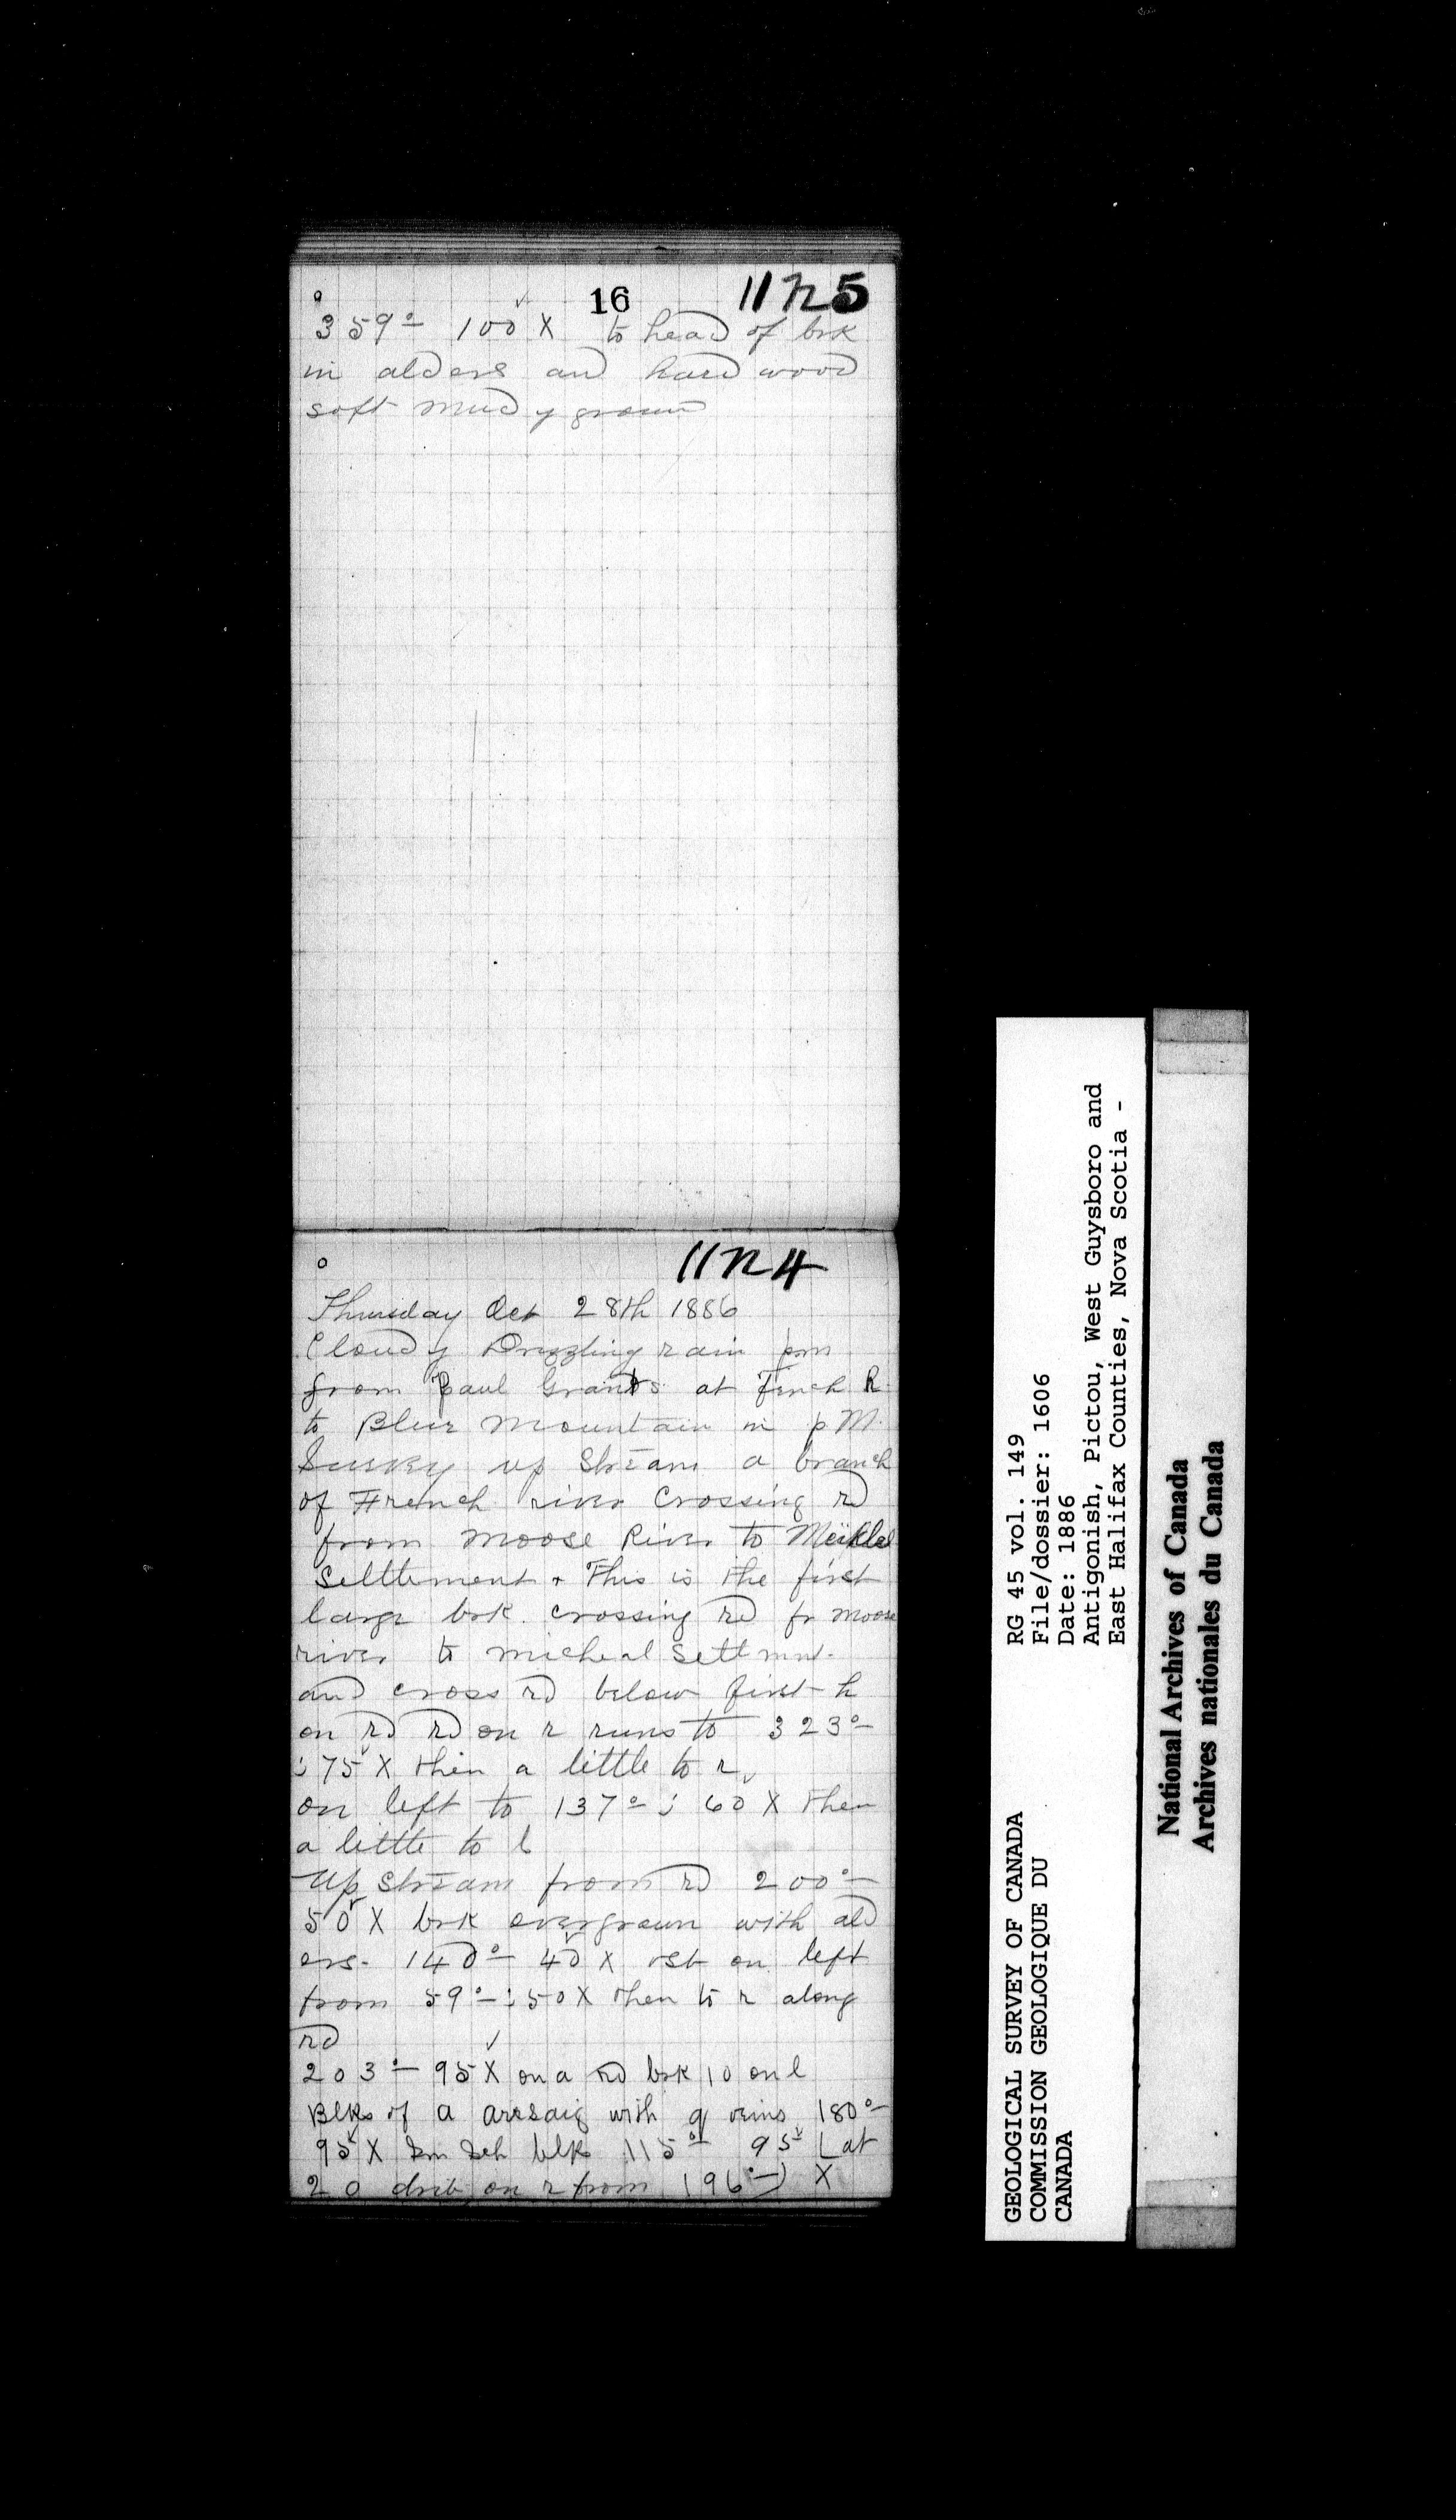 16 11N5
359° 100 X to head of brk
in alders and hard wood
soft mud y groun
11N4
Thursday Oct 28th 1886
Cloudy Drizzling rain pm
from Paul Grants at French R
to Blue Mountain in p M.
Survey up Stream a branch
of French river Crossing rd
from Moose River to Meiklel
Settlement + This is the first
large brk. crossing rd fr Moose
river to micheal Settmnt.
and cross rd below first h
on rd rd on r runs to 323°
: 75 X then a little to r
on left to 137° : 60 X then
a little to l
Up Stream from rd 200°
50 X brk overgrown with ald
ers. 140° 40 X on left
from 59° : 50 X then to r along
rd
203° 95 X on a rd brk 10 on l
Blks of a arisaig with q veins 180°
95 X blk 115° 95 Lat
20 on r from 196°) X
RG 45 vol. 149
File/dossier: 1606
Date: 1886
Antigonish, Pictou, West Guysboro and
East Halifax Counties, Nova Scotia -
GEOLOGICAL SURVEY OF CANADA
COMMISSION GEOLOGIQUE DU
CANADA
National Archives of Canada
Archives nationales du Canada